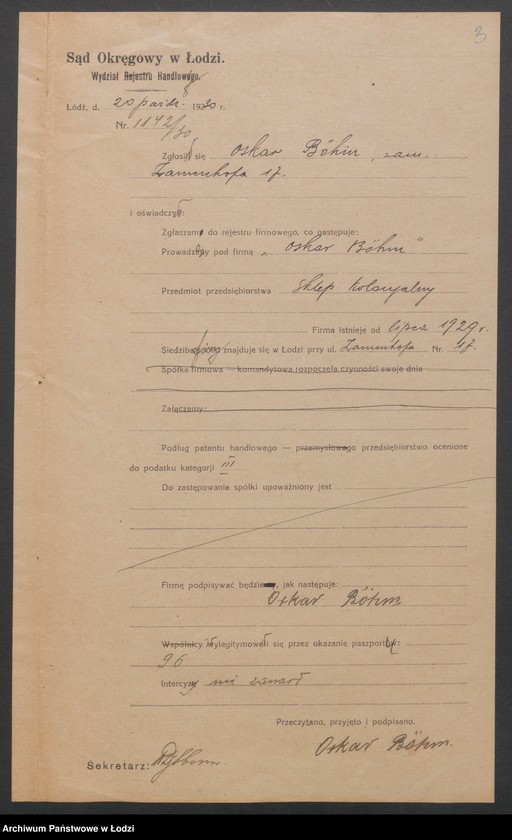 3
Sąd Okręgowy w Łodzi.
Wydział Rejestru Handlowego.
Łódź, d. 20 paźdz. 1930 r.
Nr. 1142/30
Zgłosił się Oskar Böhm, zam.
Zamenhofa 17.
i oświadczył:
Zgłaszam do rejestru firmowego, co następuje:
Prowadzę pod firmą „Oskar Böhm”
Przedmiot przedsiębiorstwa sklep kolonjalny
Firma istnieje od lipca 1929 r.
Siedziba znajduje się w Łodzi przy ul. Zamenhofa Nr. 17.
Spółka firmowa — komandytowa rozpoczęła czynności swoje dnia
Załączamy:
Podług patentu handlowego — przemysłowego przedsiębiorstwo ocenione
do podatku kategorji III
Do zastępowania spółki upoważniony jest
Firmę podpisywać będzie, jak następuje:
Oskar Böhm
Wspólnicy wylegitymował się przez okazanie paszportu:
96
Intercyzy nie zawarł
Przeczytano, przyjęto i podpisano.
Oskar Böhm.
Sekretarz:
Archiwum Państwowe w Łodzi